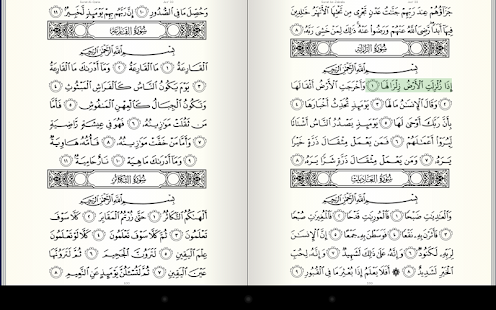 جَزَآؤُهُمْ عِندَ رَبِّهِمْ جَنَّٰتُ عَدْنٍ تَجْرِى مِن تَحْتِهَا ٱلْأَنْهَٰرُ خَٰلِدِينَ
فِيهَآ أَبَدًا رَّضِىَ ٱللَّهُ عَنْهُمْ وَرَضُوا۟ عَنْهُ ذَٰلِكَ لِمَنْ خَشِىَ رَبَّهُۥ ٨
سُورَةُ الزَّلْزَلَةِ
بِسْمِ ٱللَّهِ ٱلرَّحْمَٰنِ ٱلرَّحِيمِ
إِذَا زُلْزِلَتِ ٱلْأَرْضُ زِلْزَالَهَا ١ وَأَخْرَجَتِ ٱلْأَرْضُ أَثْقَالَهَا
٢ وَقَالَ ٱلْإِنسَٰنُ مَا لَهَا ٣ يَوْمَئِذٍ تُحَدِّثُ أَخْبَارَهَا ٤
بِأَنَّ رَبَّكَ أَوْحَىٰ لَهَا ٥ يَوْمَئِذٍ يَصْدُرُ ٱلنَّاسُ أَشْتَاتًا
لِّيُرَوْا۟ أَعْمَٰلَهُمْ ٦ فَمَن يَعْمَلْ مِثْقَالَ ذَرَّةٍ خَيْرًا
يَرَهُۥ ٧ وَمَن يَعْمَلْ مِثْقَالَ ذَرَّةٍ شَرًّا يَرَهُۥ ٨
سُورَةُ العَادِيَاتِ
بِسْمِ ٱللَّهِ ٱلرَّحْمَٰنِ ٱلرَّحِيمِ
وَٱلْعَٰدِيَٰتِ ضَبْحًا ١ فَٱلْمُورِيَٰتِ قَدْحًا ٢ فَٱلْمُغِيرَٰتِ صُبْحًا
٣ فَأَثَرْنَ بِهِۦ نَقْعًا ٤ فَوَسَطْنَ بِهِۦ جَمْعًا ٥ إِنَّ ٱلْإِنسَٰنَ
لِرَبِّهِۦ لَكَنُودٌ ٦ وَإِنَّهُۥ عَلَىٰ ذَٰلِكَ لَشَهِيدٌ ٧ وَإِنَّهُۥ لِحُبِّ
ٱلْخَيْرِ لَشَدِيدٌ ٨ ۞ أَفَلَا يَعْلَمُ إِذَا بُعْثِرَ مَا فِى ٱلْقُبُورِ ٩
وَحُصِّلَ مَا فِى ٱلصُّدُورِ ١٠ إِنَّ رَبَّهُم بِهِمْ يَوْمَئِذٍ لَّخَبِيرٌۢ ١١
سُورَةُ القَارِعَةِ
بِسْمِ ٱللَّهِ ٱلرَّحْمَٰنِ ٱلرَّحِيمِ
ٱلْقَارِعَةُ ١ مَا ٱلْقَارِعَةُ ٢ وَمَآ أَدْرَىٰكَ مَا ٱلْقَارِعَةُ
٣ يَوْمَ يَكُونُ ٱلنَّاسُ كَٱلْفَرَاشِ ٱلْمَبْثُوثِ ٤
وَتَكُونُ ٱلْجِبَالُ كَٱلْعِهْنِ ٱلْمَنفُوشِ ٥ فَأَمَّا مَن
ثَقُلَتْ مَوَٰزِينُهُۥ ٦ فَهُوَ فِى عِيشَةٍ رَّاضِيَةٍ
٧ وَأَمَّا مَنْ خَفَّتْ مَوَٰزِينُهُۥ ٨ فَأُمُّهُۥ هَاوِيَةٌ
٩ وَمَآ أَدْرَىٰكَ مَا هِيَهْ ١٠ نَارٌ حَامِيَةٌۢ ١١
سُورَةُ التَّكَاثُرِ
بِسْمِ ٱللَّهِ ٱلرَّحْمَٰنِ ٱلرَّحِيمِ
أَلْهَىٰكُمُ ٱلتَّكَاثُرُ ١ حَتَّىٰ زُرْتُمُ ٱلْمَقَابِرَ ٢ كَلَّا سَوْفَ
تَعْلَمُونَ ٣ ثُمَّ كَلَّا سَوْفَ تَعْلَمُونَ ٤ كَلَّا لَوْ تَعْلَمُونَ
عِلْمَ ٱلْيَقِينِ ٥ لَتَرَوُنَّ ٱلْجَحِيمَ ٦ ثُمَّ لَتَرَوُنَّهَا
عَيْنَ ٱلْيَقِينِ ٧ ثُمَّ لَتُسْـَٔلُنَّ يَوْمَئِذٍ عَنِ ٱلنَّعِيمِ ٨